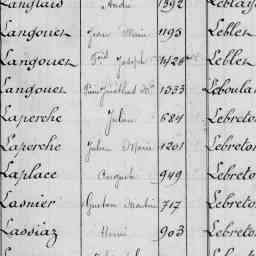 Langlais André 1392 Leblay
Langouet Jean Marie 1195 Lebles
Langouet Joseph Lebles
Langouet 1533 Leboula
Laperche Julien 684 Lebreto
Laperche Julien Marie 1201 Lebreto
Laplace Auguste 949 Lebreto
Lasnier Gustave 717 Lebreto
Lassiaz Henri 903 Lebreto